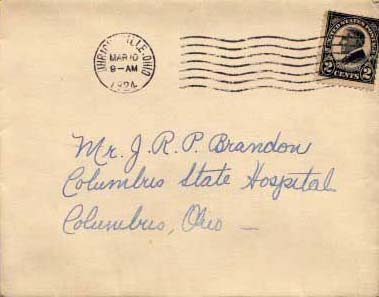 UHRICHSVILLE, OHIO
MAR 10
9-AM
1924
UNITED STATES POSTAGE
2 CENTS 2
Mr. J. R. P. Brandon
Columbus State Hospital
Columbus, Ohio —